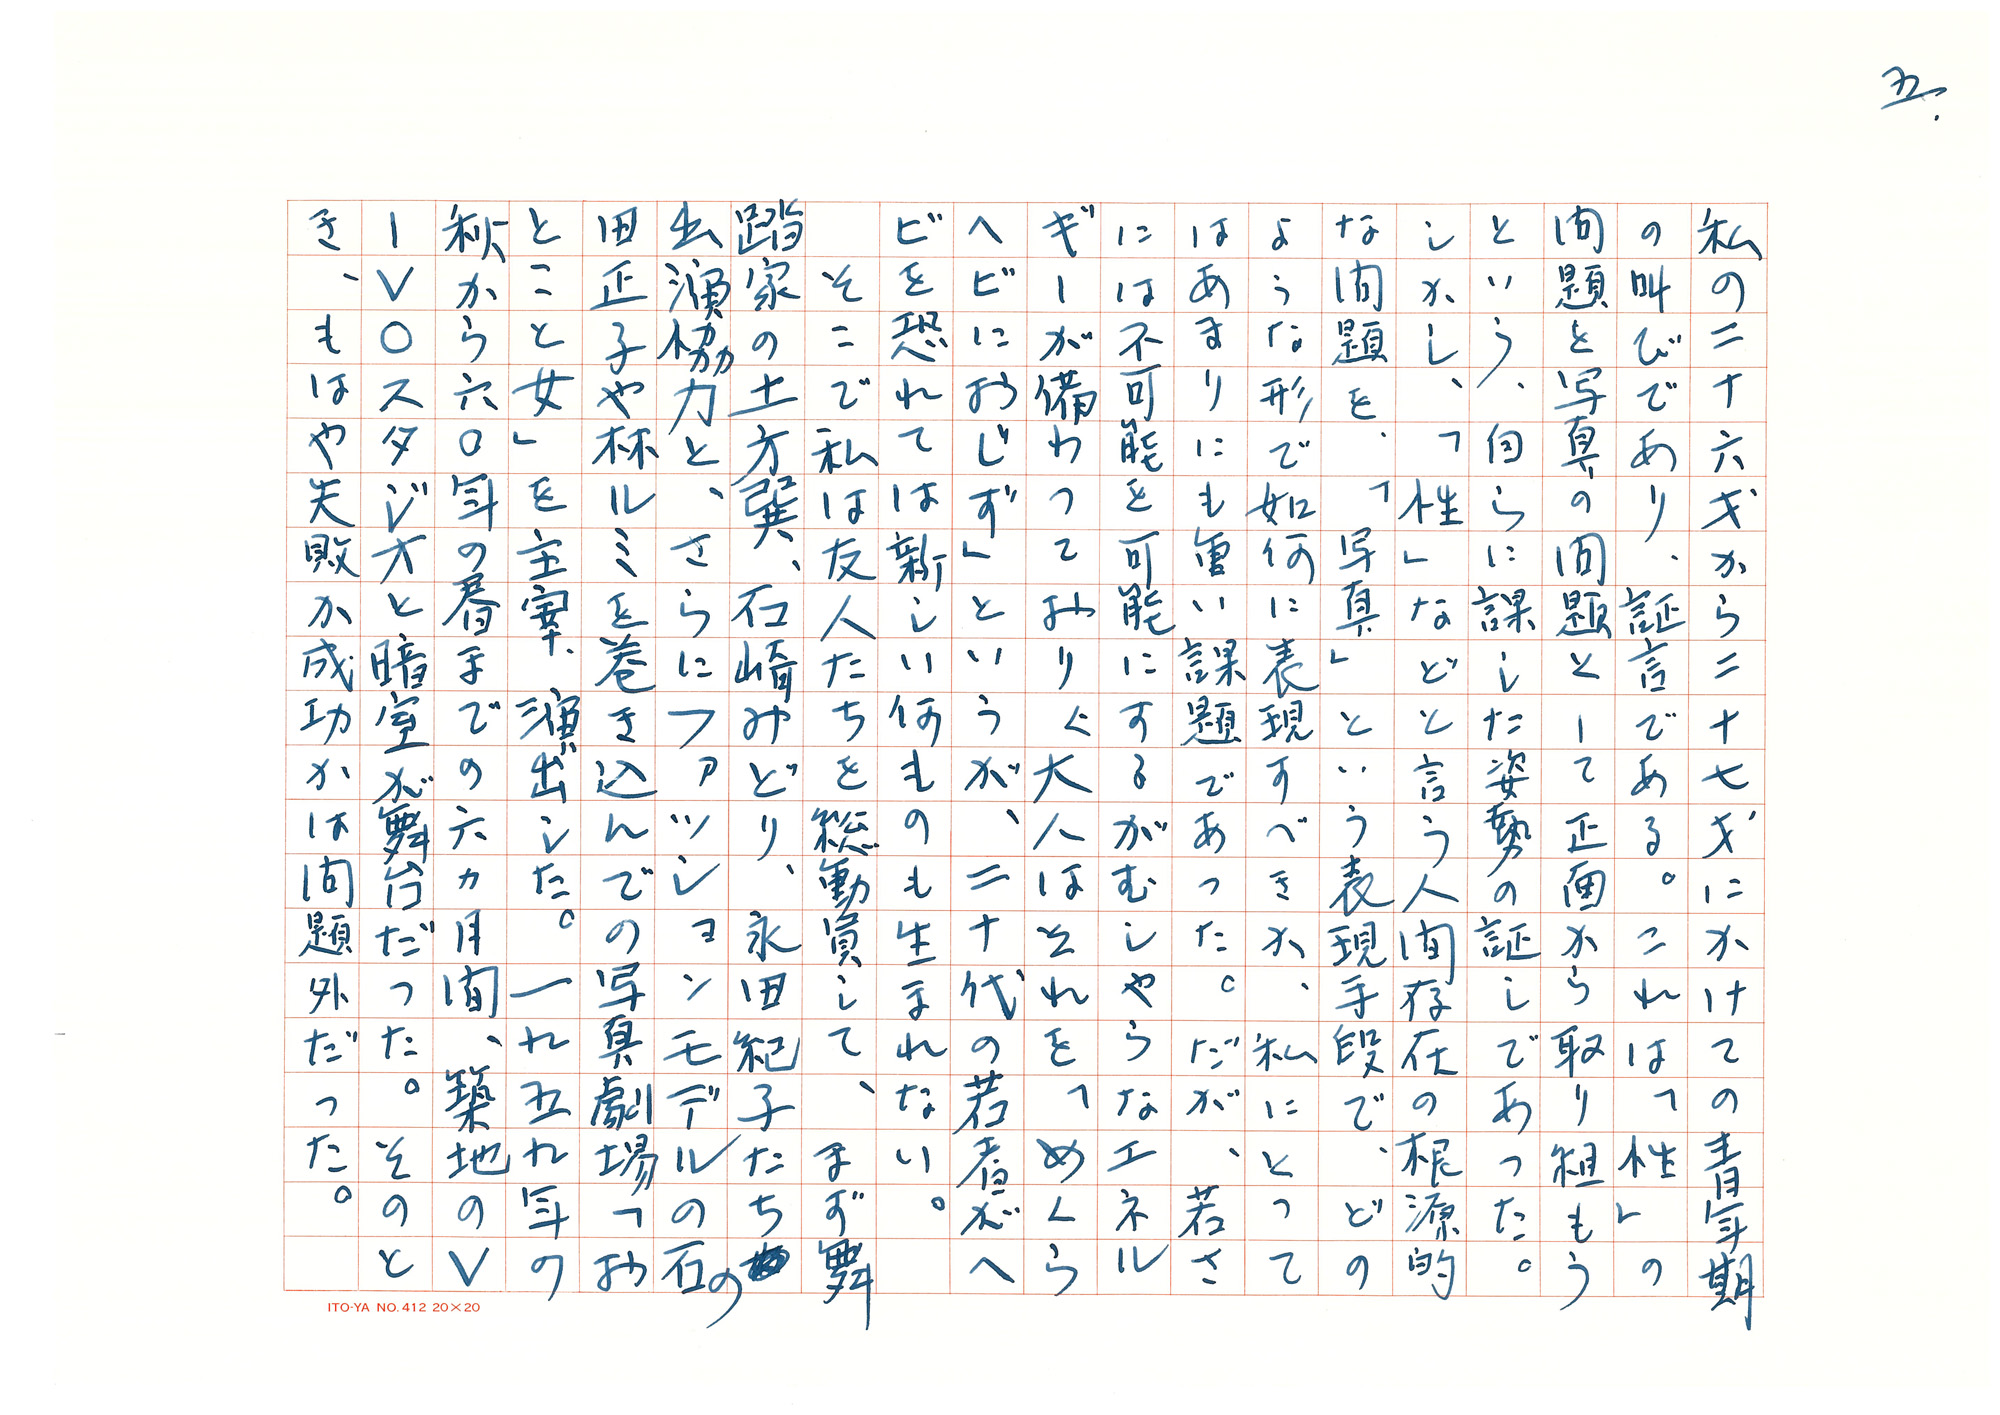 五.
私の二十六才から二十七才にかけての青年期
の叫びであり、証言である。これは「性」の
問題と写真の問題として正面から取り組もう
という、自らに課した姿勢の証しであった。
しかし、「性」などと言う人間存在の根源的
な問題を、「写真」という表現手段で、どの
ような形で如何に表現すべきか、私にとって
はあまりにも重い課題であった。だが、若さ
には不可能を可能にするがむしゃらなエネル
ギーが備わっており、大人はそれを「めくら
ヘビにおじず」というが、二十代の若者がヘ
ビを恐れてはは新しい何ものも生まれない。
そこで私は友人たちを総動員して、まず舞
踏家の土方巽、石崎みどり、永田紀子たちの
出演協力と、さらにファッションモデルの石
田正子や林ルミを巻き込んでの写真劇場「お
とこと女」を主宰、演出した。一九五九年の
秋から六〇年の春までの六ヵ月間、築地のV
ーVOスタジオと暗室が舞台だった。そのと
き、もはや失敗か成功かは問題外だった。
ITO-YA NO.412 20×20